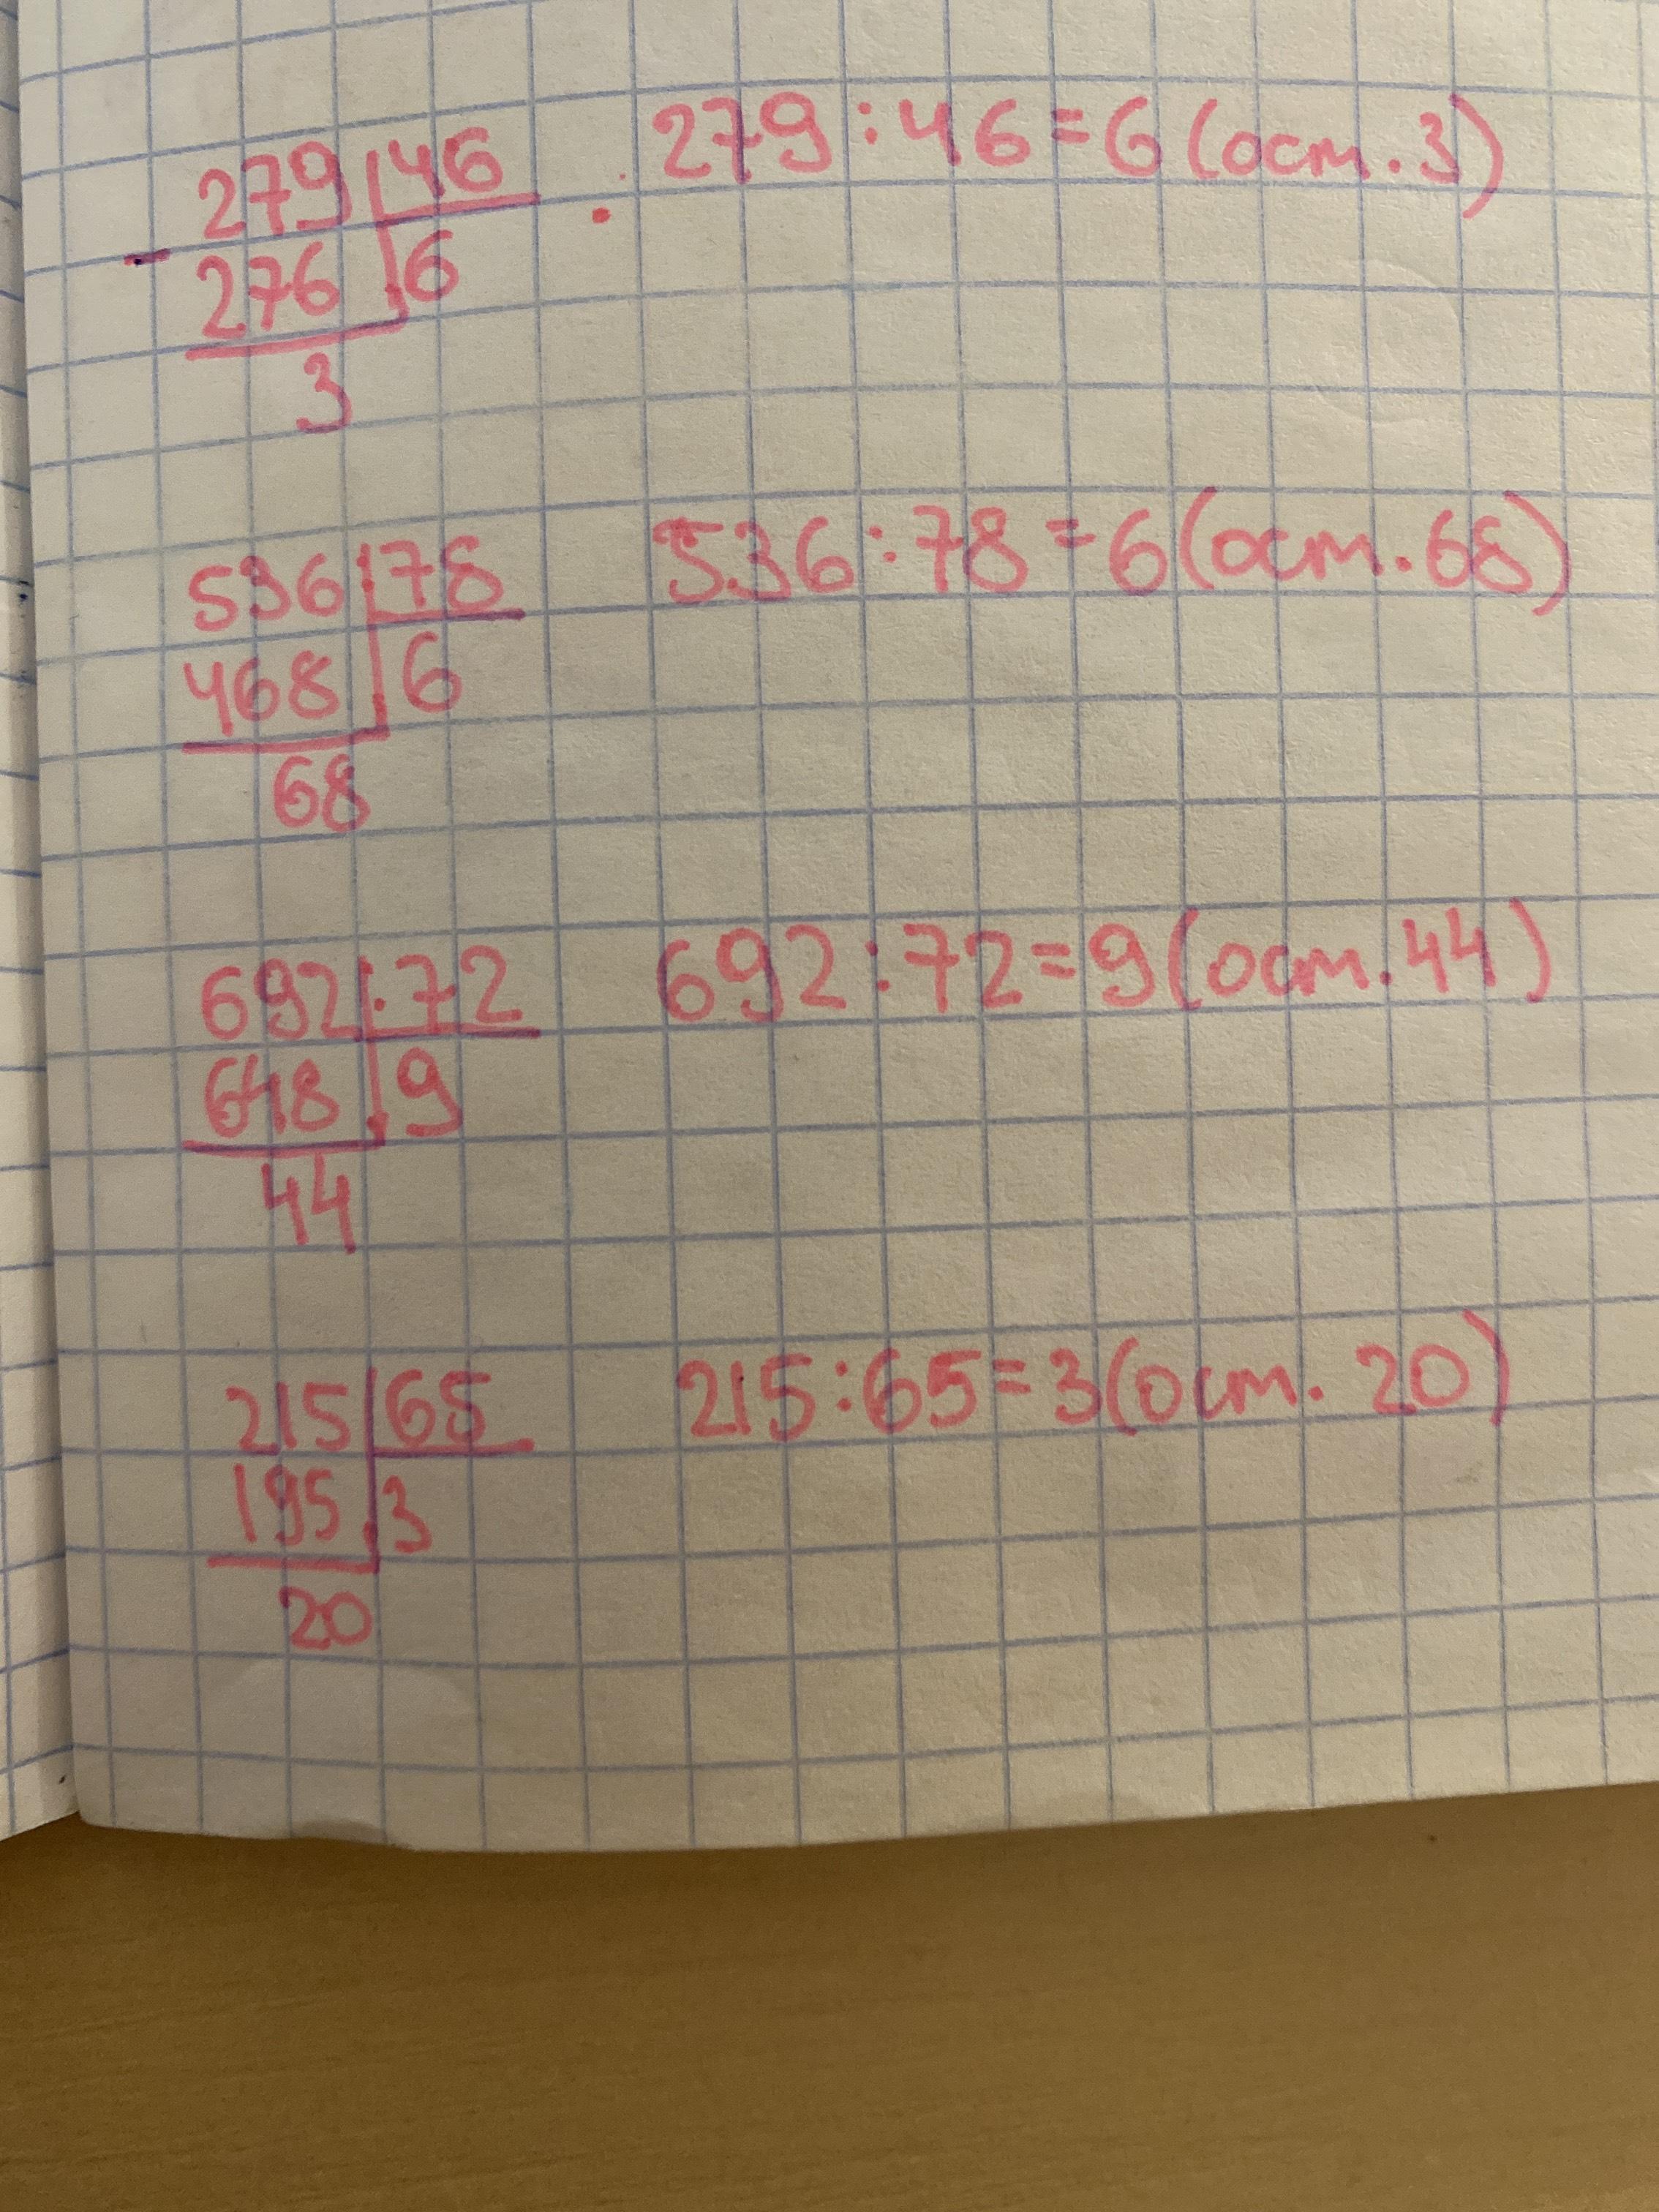 279 46 279:46=6(ост.3)
- 276 6
3
536 78 536:78=6(ост.68)
468 6
68
692 72 692:72=9(ост.44)
648 9
44
215 65 215:65=3(ост. 20)
195 3
20